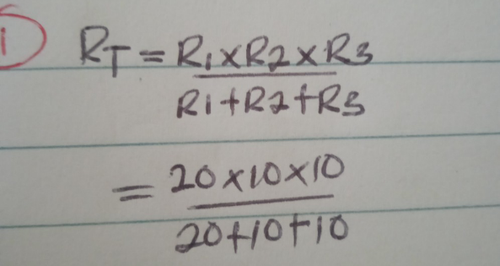 1
RT = R1 x R2 x R3
R1 + R2 + R3
= 20 x 10 x 10
20 + 10 + 10